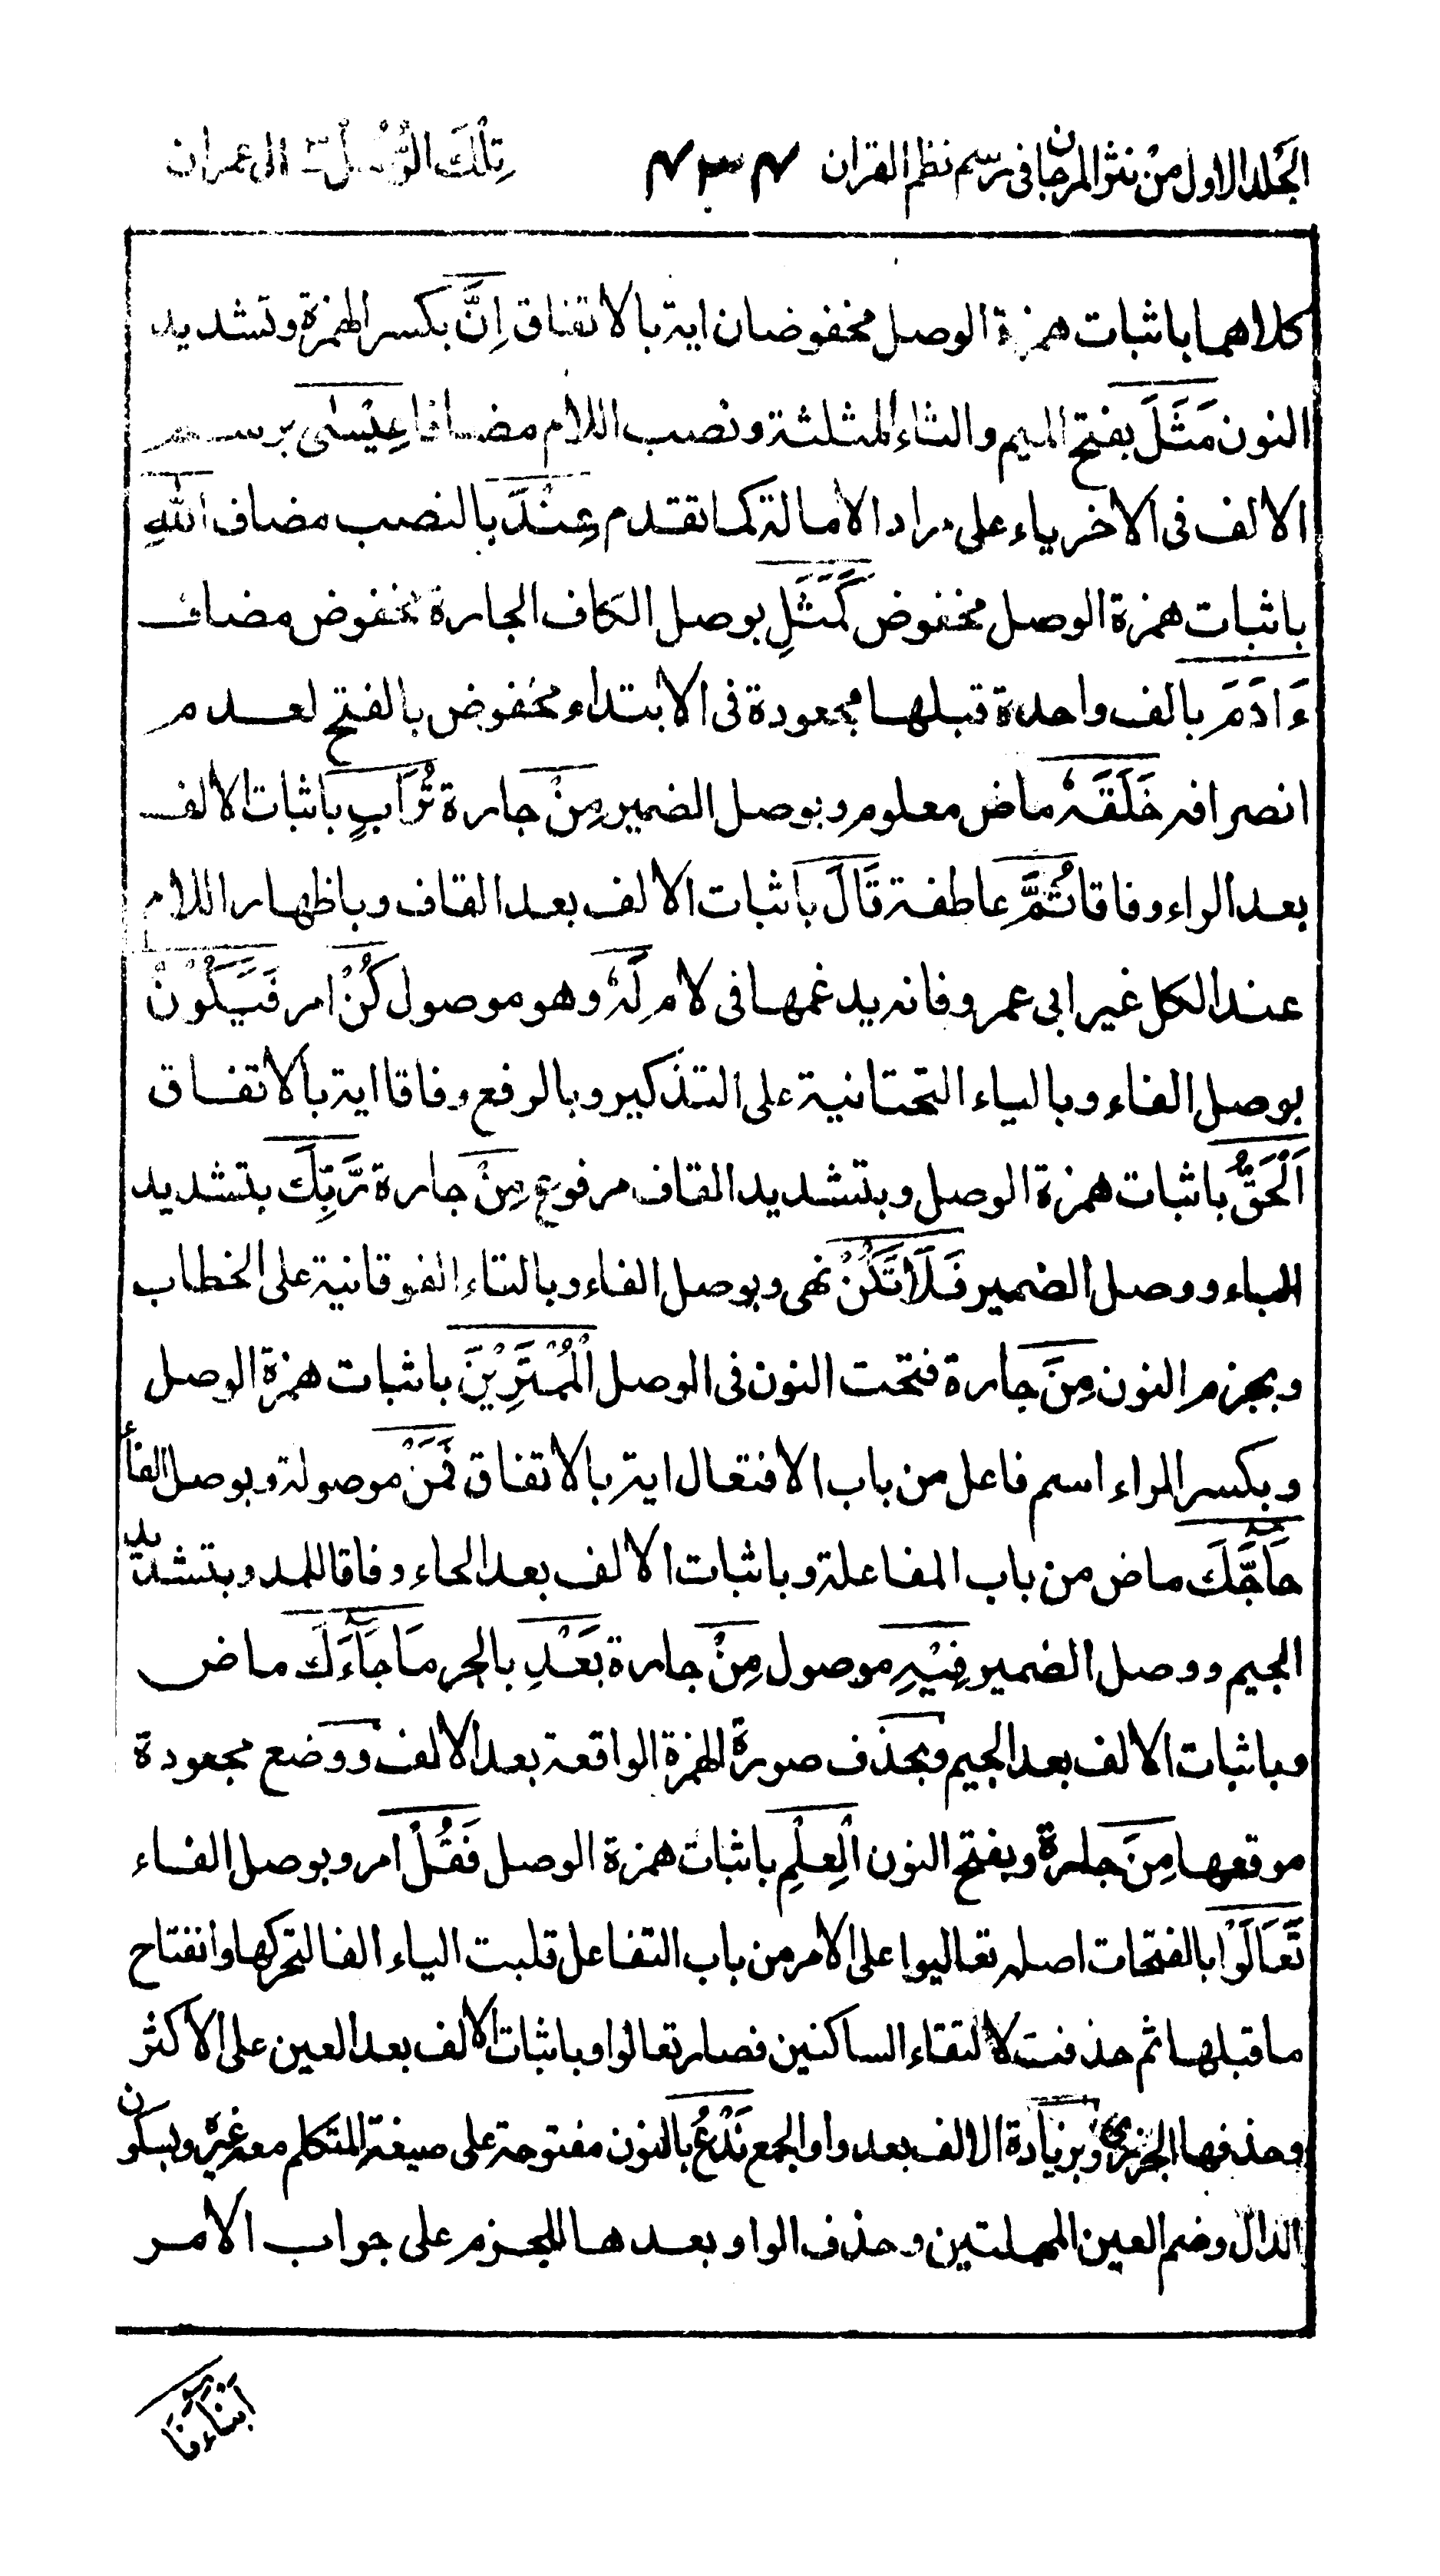 الجلد الاول من نثر المرجان فى رسم نظم القران ٤٣٤ تِلْكَ الرُّسُلُ ــ ال عمران
كلاهما باثبات همزة الوصل مخفوضان اية بالاتفاق اِنَّ بكسر الهمزة وتشديد
النون مَثَلَ بفتح الميم والثاء المثلثة ونصب اللام مضافا عِيْسٰى برسم
الالف فى الاخر ياء على مراد الامالة كما تقدم عِنْدَ بالنصب مضاف اللّٰهِ
باثبات همزة الوصل مخفوض كَمَثَلِ بوصل الكاف الجارة مخفوض مضاف
ءَادَمَ بالف واحدة قبلها مجعودة فى الابتداء مخفوض بالفتح لعدم
انصرافه خَلَقَهٗ ماض معلوم وبوصل الضمير مِنْ جارة تُرَابٍ باثبات الالف
بعد الراء وفاقا ثُمَّ عاطفة قَالَ باثبات الالف بعد القاف وباظهار اللام
عند الكل غير ابى عمرو فانه يدغمها فى لام لَهٗ وهو موصول كُنْ امر فَيَكُوْنُ
بوصل الفاء وبالياء التحتانية على التذكير وبالرفع وفاقا اية بالاتفاق
اَلْحَقُّ باثبات همزة الوصل وبتشديد القاف مرفوع مِنْ جارة رَّبِّكَ بتشديد
الباء ووصل الضمير فَلَا تَكُنْ نهى وبوصل الفاء وبالتاء الفوقانية على الخطاب
وبجزم النون مِنَ جارة فتحت النون فى الوصل الْمُمْتَرِيْنَ باثبات همزة الوصل
وبكسر الراء اسم فاعل من باب الافتعال اية بالاتفاق فَمَنْ موصولة وبوصل الفاء
حَآجَّكَ ماض من باب المفاعلة وباثبات الالف بعد الحاء وفاقا للمد وبتشديد
الجيم ووصل الضمير فِيْهِ موصول مِنْ جارة بَعْدِ بالجر مَا جَآءَكَ ماض
وباثبات الالف بعد الجيم وبحذف صورة الهمزة الواقعة بعد الالف ووضع مجعودة
موقعها مِنَ جارة وبفتح النون الْعِلْمِ باثبات همزة الوصل فَقُلْ امر وبوصل الفاء
تَعَالَوْا بالفتحات اصله تعاليوا على الامر من باب التفاعل قلبت الياء الفا لتحركها وانفتاح
ما قبلها ثم حذفت لالتقاء الساكنين فصار تعالوا وباثبات الالف بعد العين على الاكثر
وحذفها الجزرى وبزيادة الالف بعد واو الجمع نَدْعُ بالنون مفتوحة على صيغة المتكلم معه غيره وبسكون
الدال وضم العين المهملتين وحذف الواو بعدها للجزم على جواب الامر
اَبْنَآءَنَا